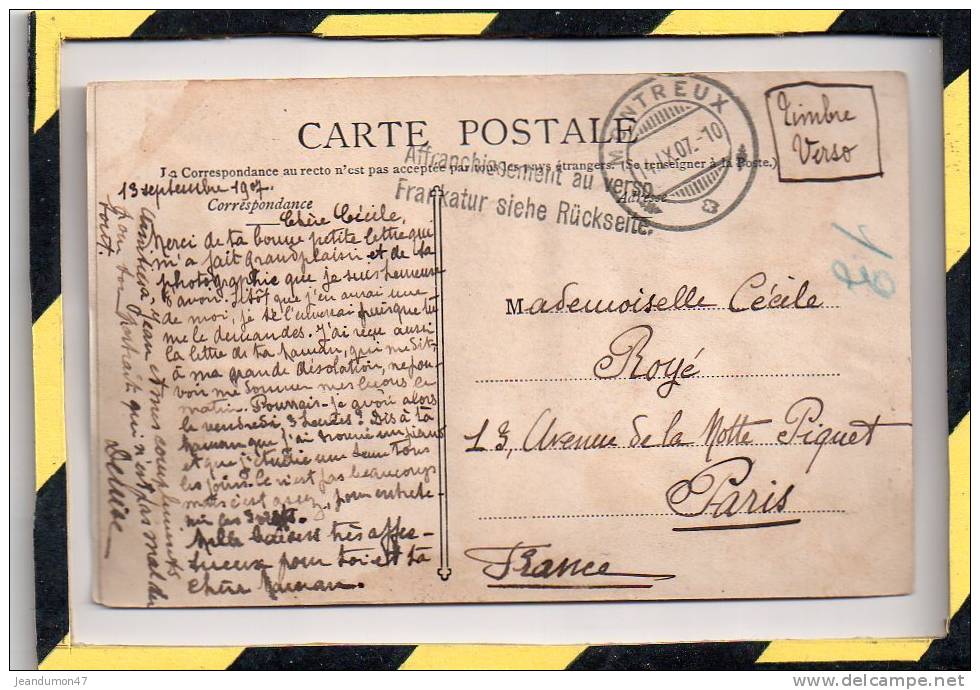 CARTE POSTALE
La Correspondance au recto n'est pas acceptée par tous les pays étrangers. (Se renseigner à la Poste.)
MONTREUX
IX.07.-10
Timbre
Verso
Affranchissement au verso
Frankatur siehe Rückseite.
Correspondance
Adresse
13 septembre 1907.
Chère Cécile,
Merci de ta bonne petite lettre qui
m'a fait grand plaisir et de ta
photographie que je suis heureuse
d'avoir. Sitôt que j'en aurai une
de moi, je te l'enverrai puisque tu
me le demandes. J'ai reçu aussi
la lettre de ta maman, qui me dit
à ma grande désolation, ne pou-
voir me donner mes leçons le
matin. Pourrais-je avoir alors
le vendredi 3 heures? Dis à ta
maman que j'ai trouvé un piano
et que j'étudie un peu tous
les jours. Ce n'est pas beaucoup
mais c'est assez, pour entrete-
nir les doigts.
Mille baisers très affec-
tueux pour toi et ta
chère maman.
Denise
Jean mes compliments
pour son portrait qui n'est pas mal du
tout.
Mademoiselle Cécile
Royé
13, Avenue de la Motte Piquet
Paris
France
jeandumon47
delcampe.net